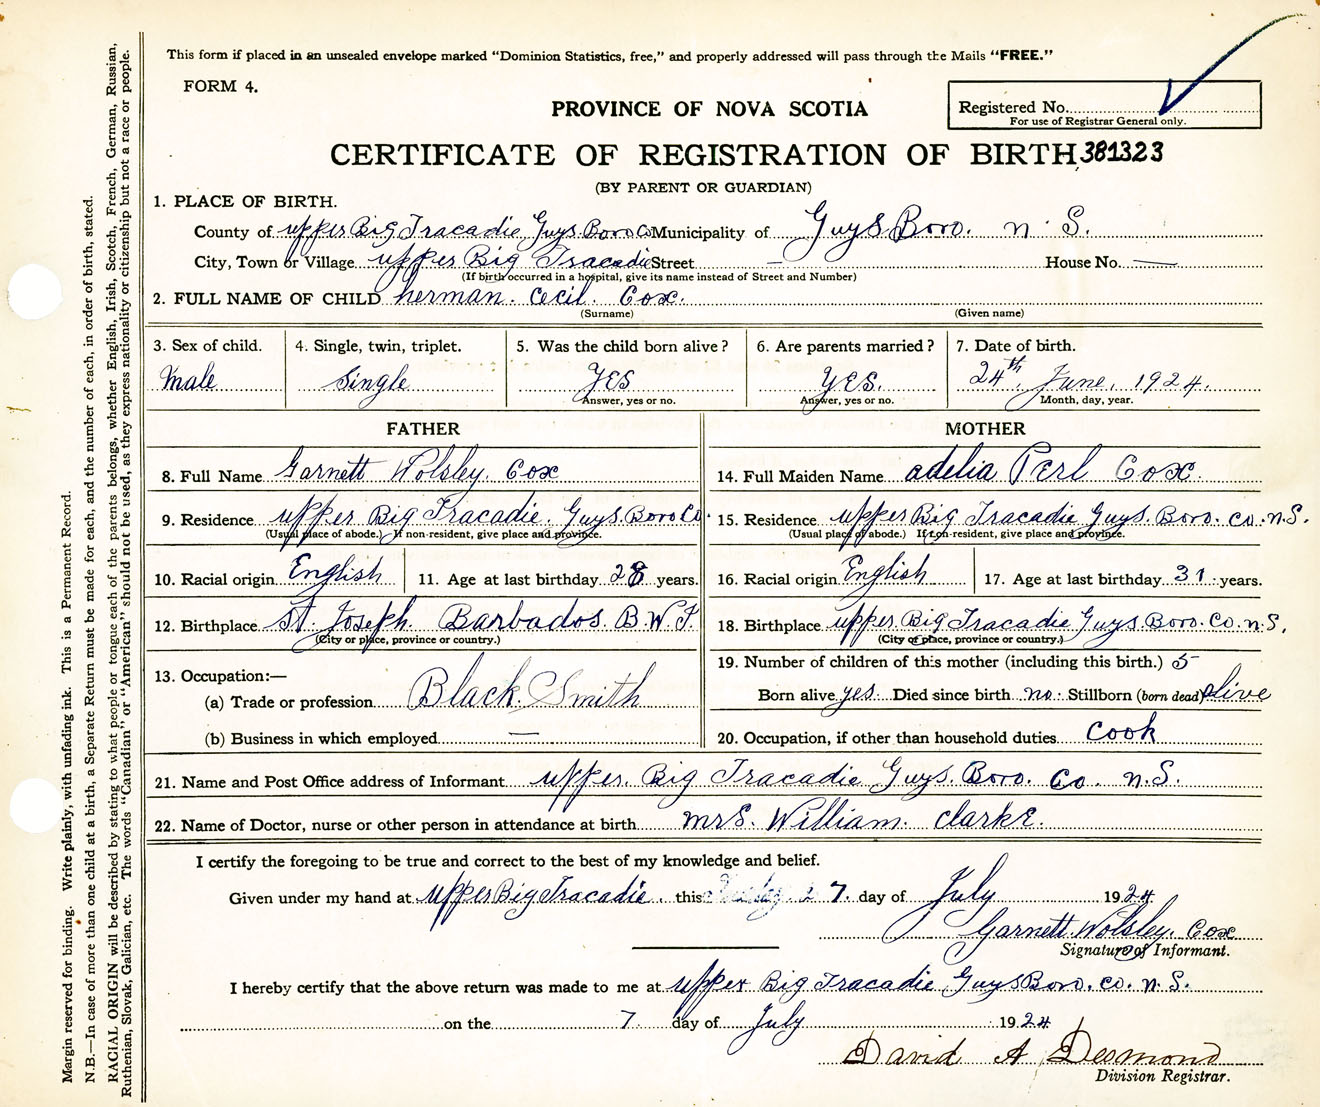 This form if placed in an unsealed envelope marked "Dominion Statistics, free," and properly addressed will pass through the Mails "FREE."
FORM 4.
PROVINCE OF NOVA SCOTIA
Registered No.
For use of Registrar General only.
CERTIFICATE OF REGISTRATION OF BIRTH 381323
(BY PARENT OR GUARDIAN)
1. PLACE OF BIRTH.
County of upper Big Tracadie Guys Boro Co Municipality of Guys Boro. n. S.
City, Town or Village upper Big Tracadie Street — House No. —
(If birth occurred in a hospital, give its name instead of Street and Number)
2. FULL NAME OF CHILD herman. Cecil. Cox.
(Surname) (Given name)
3. Sex of child. 4. Single, twin, triplet. 5. Was the child born alive? 6. Are parents married? 7. Date of birth.
Male Single YES YES. 24th June, 1924.
Answer, yes or no. Answer, yes or no. Month, day, year.
FATHER MOTHER
8. Full Name Garnett Wolsley. Cox 14. Full Maiden Name adelia Perl Cox
9. Residence upper Big Tracadie. Guys. Boro Co. 15. Residence upper Big Tracadie Guys. Boro. Co. n. S.
(Usual place of abode.) If non-resident, give place and province. (Usual place of abode.) If non-resident, give place and province.
10. Racial origin English 11. Age at last birthday 28 years. 16. Racial origin English 17. Age at last birthday 31 years.
12. Birthplace St. Joseph. Barbados. B. W. I. 18. Birthplace upper. Big Tracadie Guys. Boro. Co. n. S.
(City or place, province or country.) (City or place, province or country.)
13. Occupation:— 19. Number of children of this mother (including this birth.) 5
(a) Trade or profession Black. Smith Born alive yes Died since birth no. Stillborn (born dead) alive
(b) Business in which employed — 20. Occupation, if other than household duties Cook
21. Name and Post Office address of Informant upper. Big Tracadie Guys. Boro. Co. n. S.
22. Name of Doctor, nurse or other person in attendance at birth mrs. William. Clarke.
I certify the foregoing to be true and correct to the best of my knowledge and belief.
Given under my hand at upper Big Tracadie this 7. day of July 1924
Garnett. Wolsley. Cox
Signature of Informant.
I hereby certify that the above return was made to me at upper Big Tracadie Guys Boro. Co. n. S.
on the 7 day of July 1924
David A. Desmond
Division Registrar.
Margin reserved for binding. Write plainly, with unfading ink. This is a Permanent Record.
N.B.—In case of more than one child at a birth, a Separate Return must be made for each, and the number of each, in order of birth, stated.
RACIAL ORIGIN will be described by stating to what people or tongue each of the parents belongs, whether English, Irish, Scotch, French, German, Russian,
Ruthenian, Slovak, Galician, etc. The words "Canadian" or "American" should not be used, as they express nationality or citizenship but not a race or people.